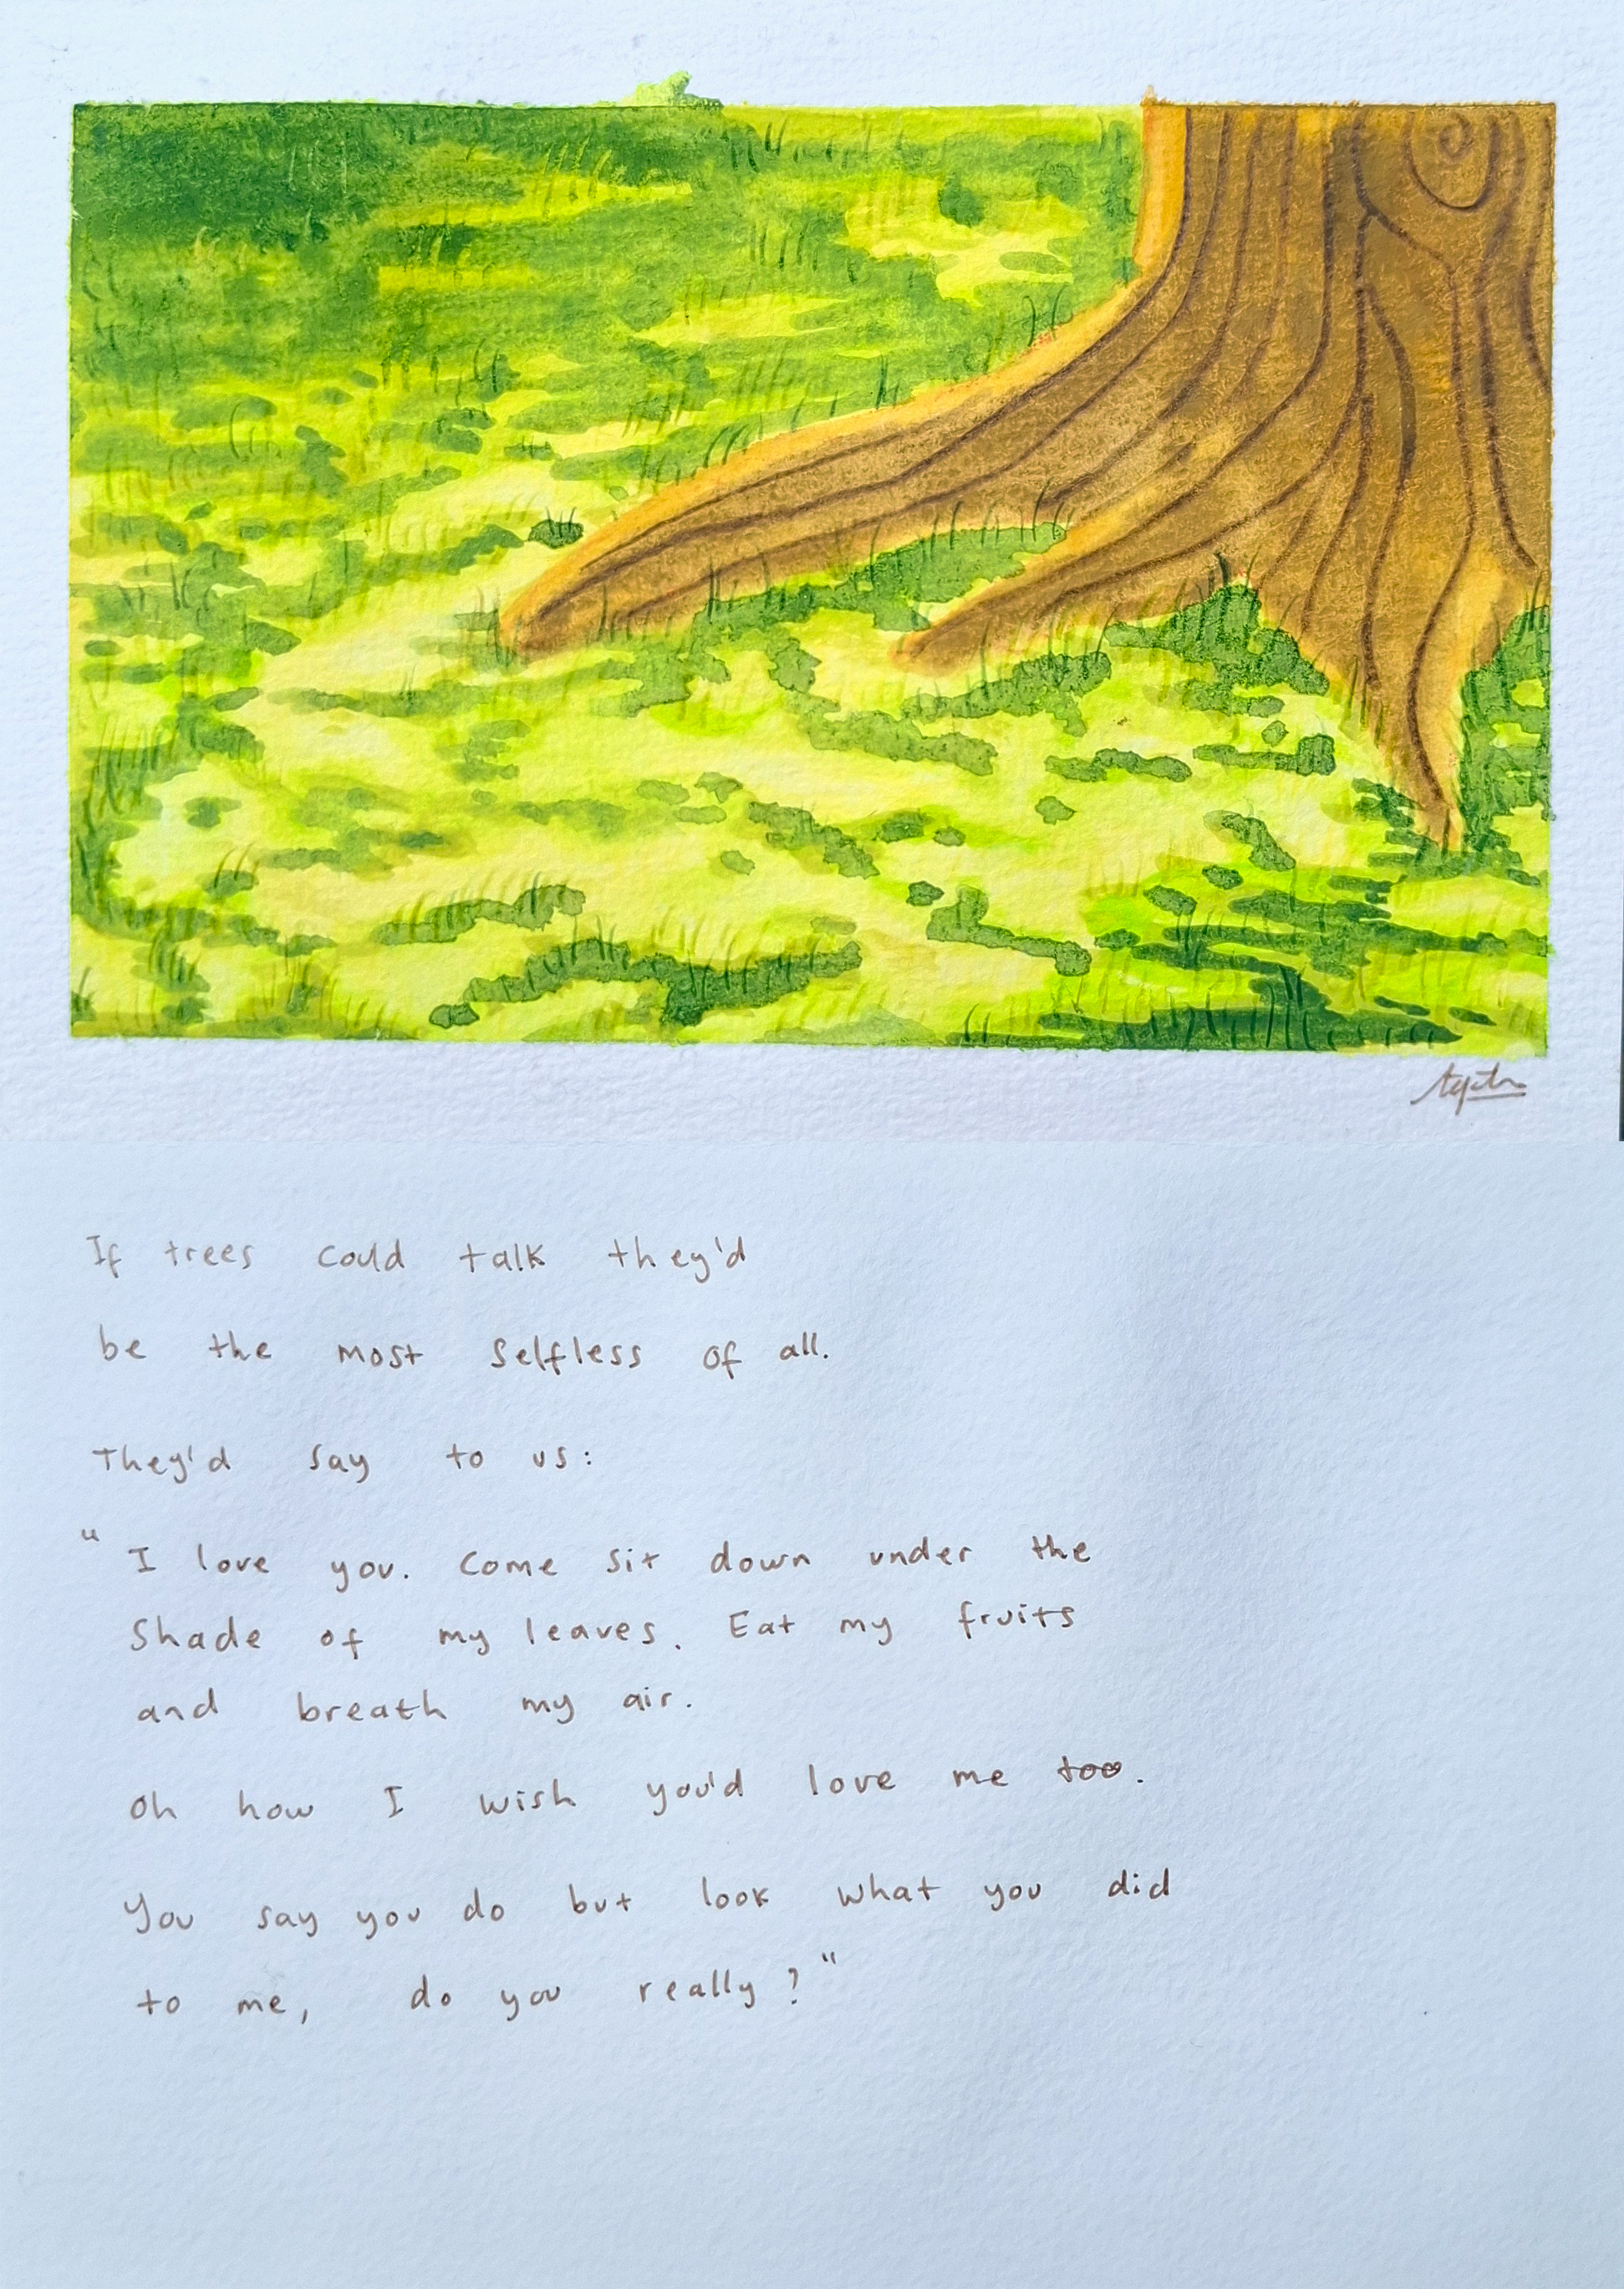 If trees could talk they'd
be the most selfless of all.
They'd say to us:
"I love you. Come sit down under the
Shade of my leaves. Eat my fruits
and breath my air.
Oh how I wish you'd love me too.
You say you do but look what you did
to me, do you really?"